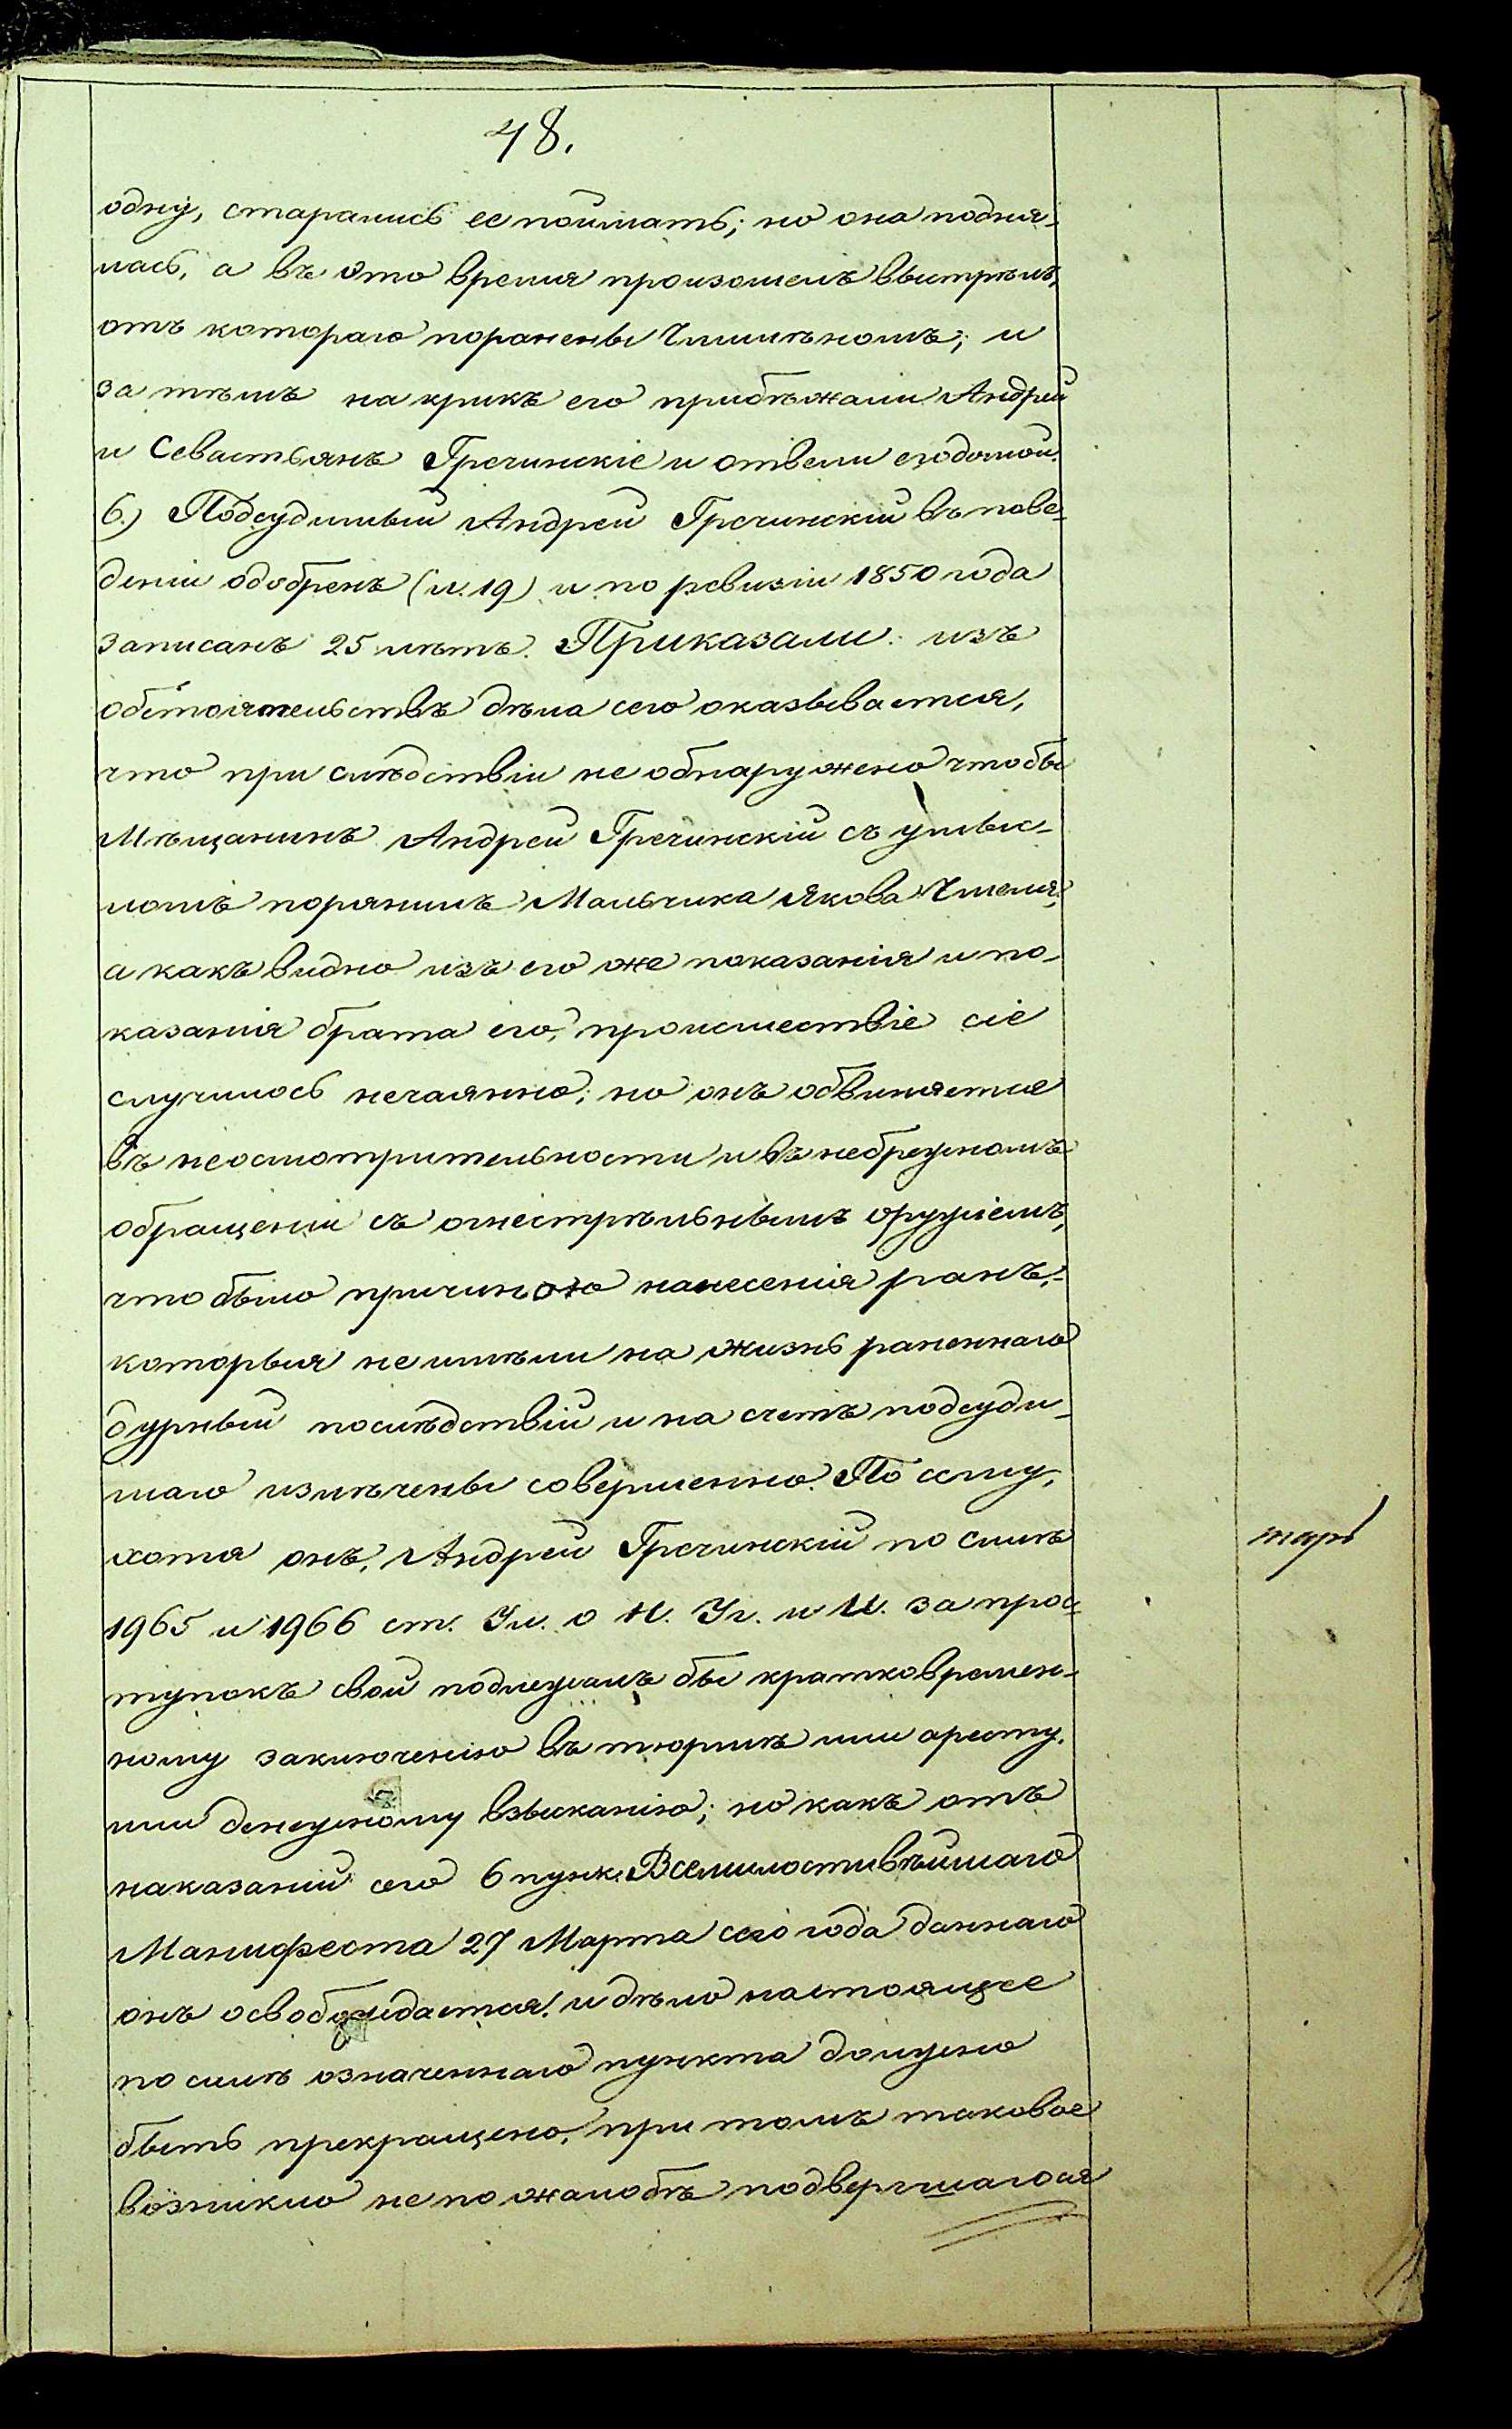 48.
одну, старались ее поймать; но она подня-
лась, а въ это время произошелъ выстрѣлъ,
отъ котораго пораненъ Чмилѣномъ; и
за тѣмъ на крикъ его прибѣжали Андрей
и Севастьянъ Гречинскіе и отвели его домой.
6.) Подсудимый Андрей Гречинскій въ пове-
деніи одобренъ (л. 19) и по ревизіи 1850 года
записанъ 25 лѣтъ. Приказали: изъ
обстоятельствъ дѣла сего оказывается,
что при слѣдствіи не обнаружено чтобы
Мѣщанинъ Андрей Гречинскій съ умыс-
ломъ поранилъ Мальчика Якова Чмеля,
а какъ видно изъ его же показанія и по-
казанія брата его, происшествіе сіе
случилось нечаянно; но онъ обвиняется
въ неосмотрительности и въ небрежномъ
обращеніи съ огнестрѣльнымъ оружіемъ,
что было причиною нанесенія ранъ,
которыя не имѣли на жизнь раненнаго
дурный послѣдствій и на счетъ подсуди-
маго излѣчены совершенно. По сему,
хотя онъ, Андрей Гречинскій по силѣ
1965 и 1966 ст. Ул. о Н. Уг. и И. за прос-
тупокъ свой подлежалъ бы кратковремен-
ному заключенію въ тюрьмѣ или аресту,
или денежному взысканію; но какъ отъ
наказаній сего 6 пунк. Всемилостивѣйшаго
Манифеста 27 Марта сего года даннаго
онъ освобождается, и дѣло настоящее
по силѣ означеннаго пункта должно
быть прекращено, при томъ таковое
возникло не по жалобѣ подвергшагося